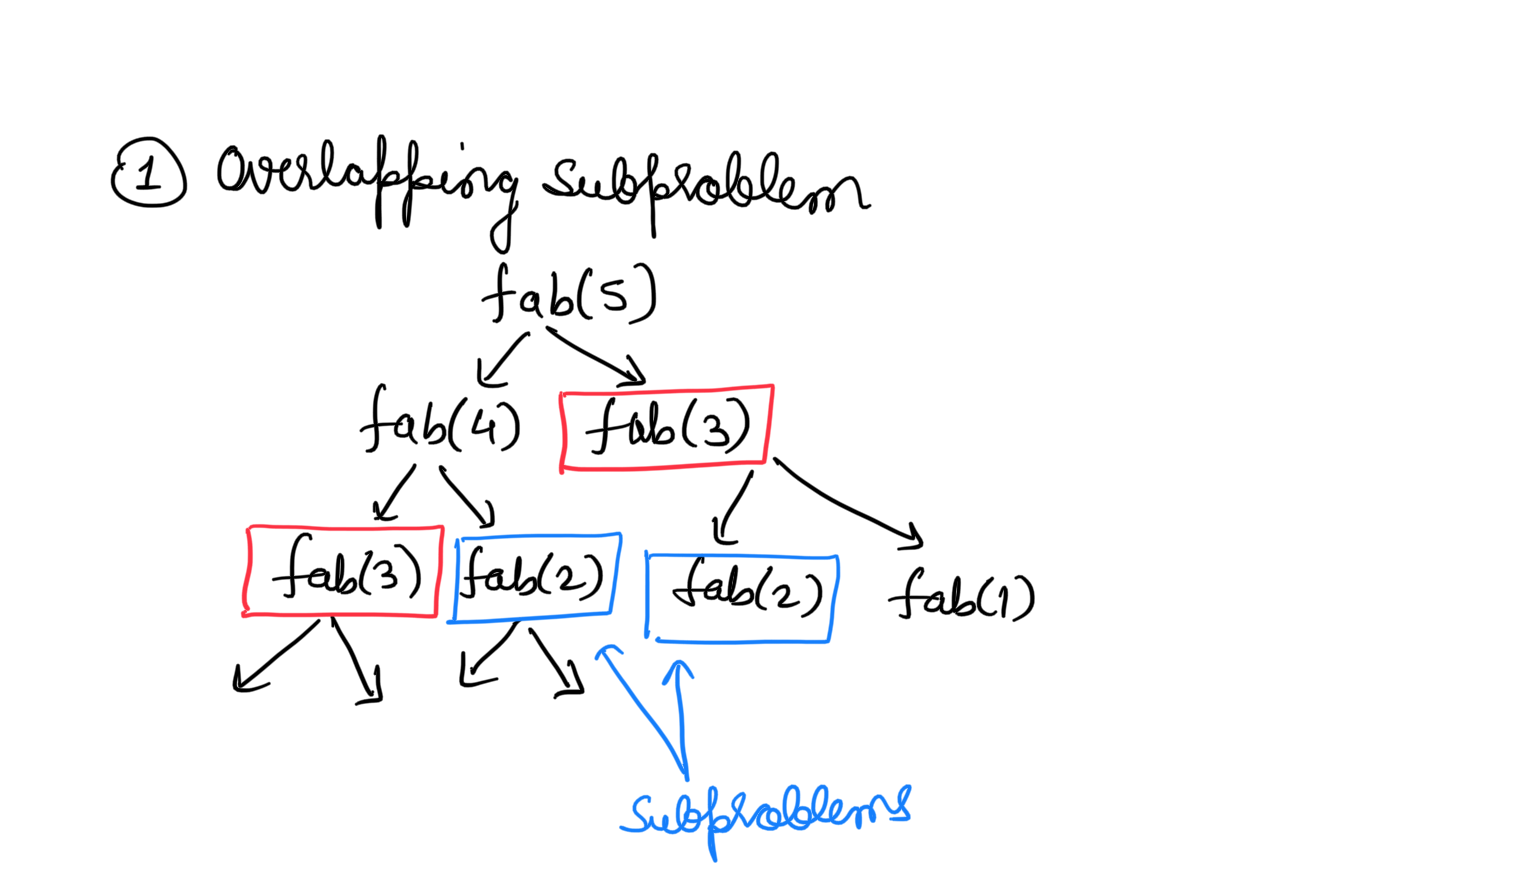 1 Overlapping Subproblem
fab(5)
fab(4) fab(3)
fab(3) fab(2) fab(2) fab(1)
Subproblems